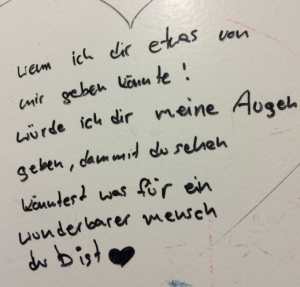 wenn ich dir etwas von
mir geben könnte!
würde ich dir meine Augen
geben, dammit du sehen
könntest was für ein
wunderbarer mensch
du bist ♥